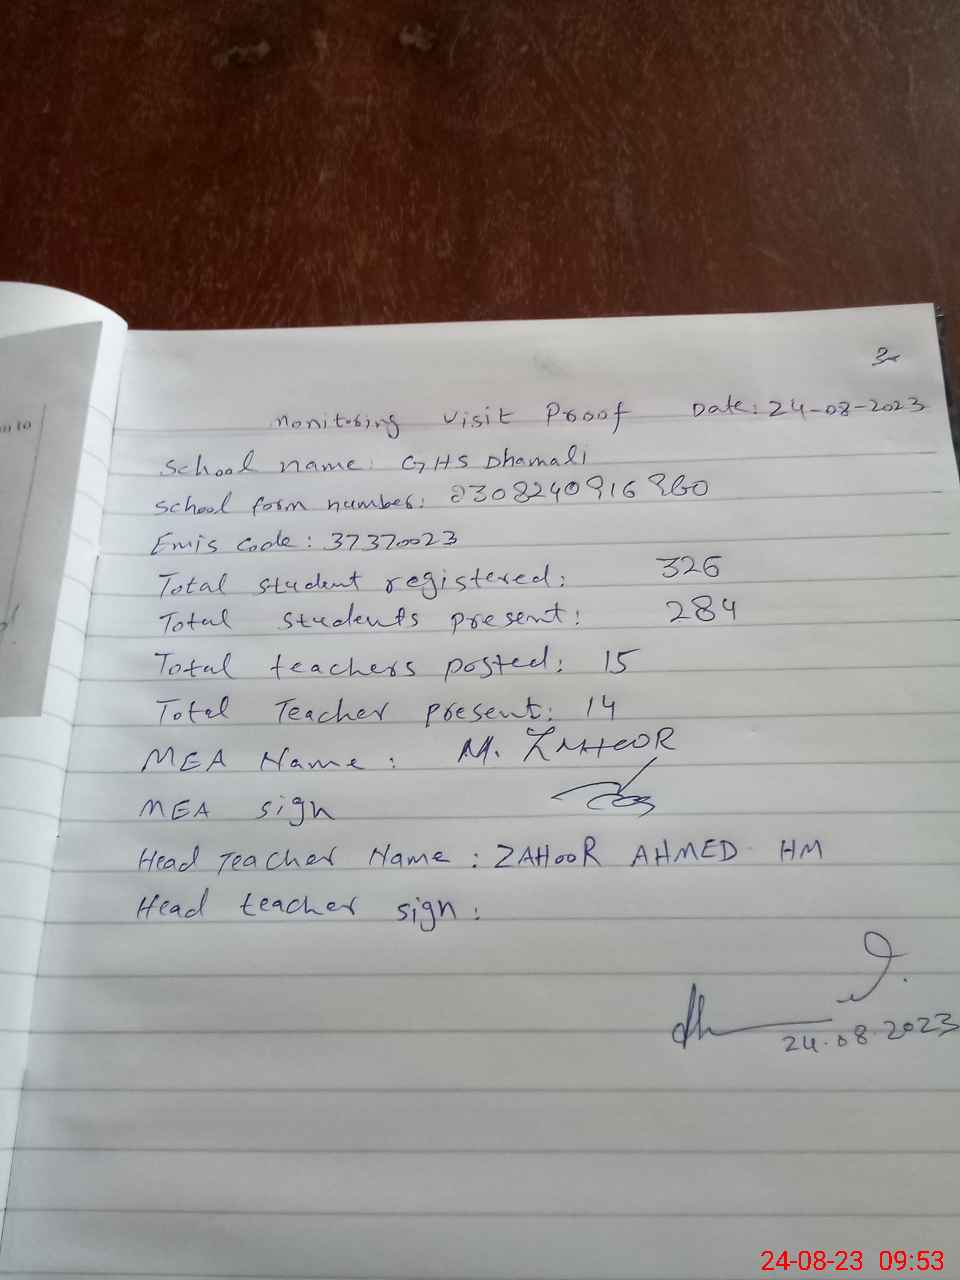 Monitoring Visit Proof Date: 24-08-2023
School name: GHS Dhamali
School form number: 2308240916
Emis Code: 37370023
Total student registered: 326
Total students present: 284
Total teachers posted: 15
Total Teacher present: 14
MEA Name: M. ZAHOOR
MEA sign
Head Teacher Name: ZAHOOR AHMED HM
Head teacher sign:
24.08.2023
24-08-23 09:53